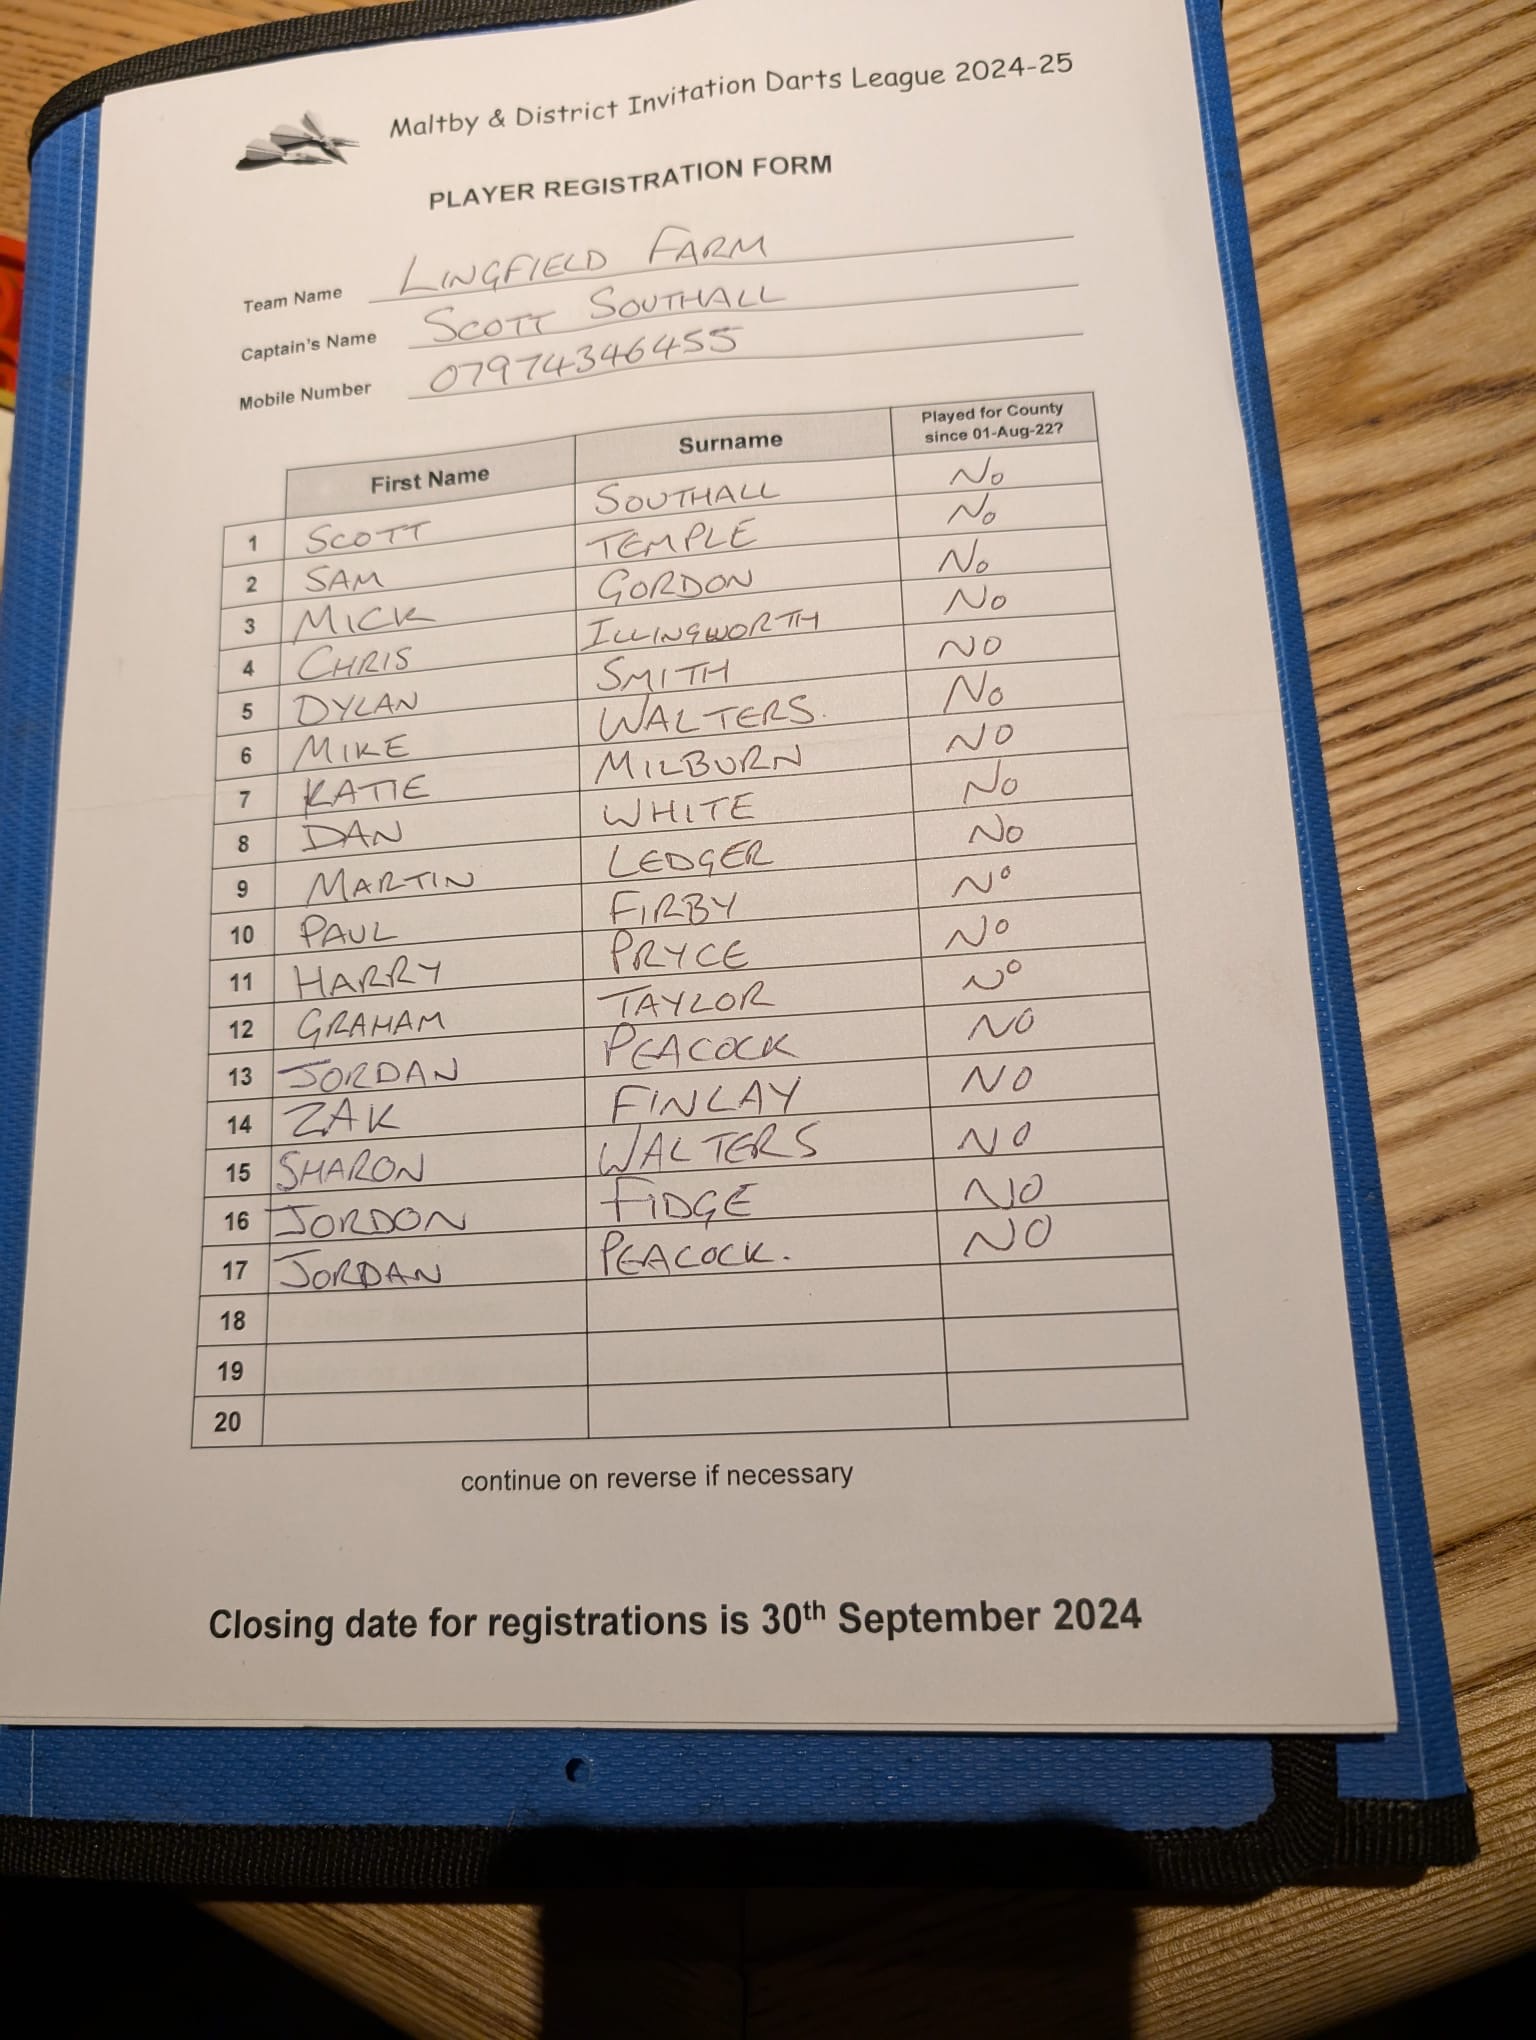 Maltby & District Invitation Darts League 2024-25
PLAYER REGISTRATION FORM
Team Name LINGFIELD FARM
Captain's Name SCOTT SOUTHALL
Mobile Number 07974346455
First Name Surname Played for County since 01-Aug-22?
1 SCOTT SOUTHALL No
2 SAM TEMPLE No
3 MICK GORDON No
4 CHRIS ILLINGWORTH No
5 DYLAN SMITH NO
6 MIKE WALTERS. No
7 KATIE MILBURN NO
8 DAN WHITE No
9 MARTIN LEDGER No
10 PAUL FIRBY No
11 HARRY PRYCE No
12 GRAHAM TAYLOR No
13 JORDAN PEACOCK NO
14 ZAK FINLAY NO
15 SHARON WALTERS NO
16 JORDON FIDGE NO
17 JORDAN PEACOCK. NO
18
19
20
continue on reverse if necessary
Closing date for registrations is 30th September 2024